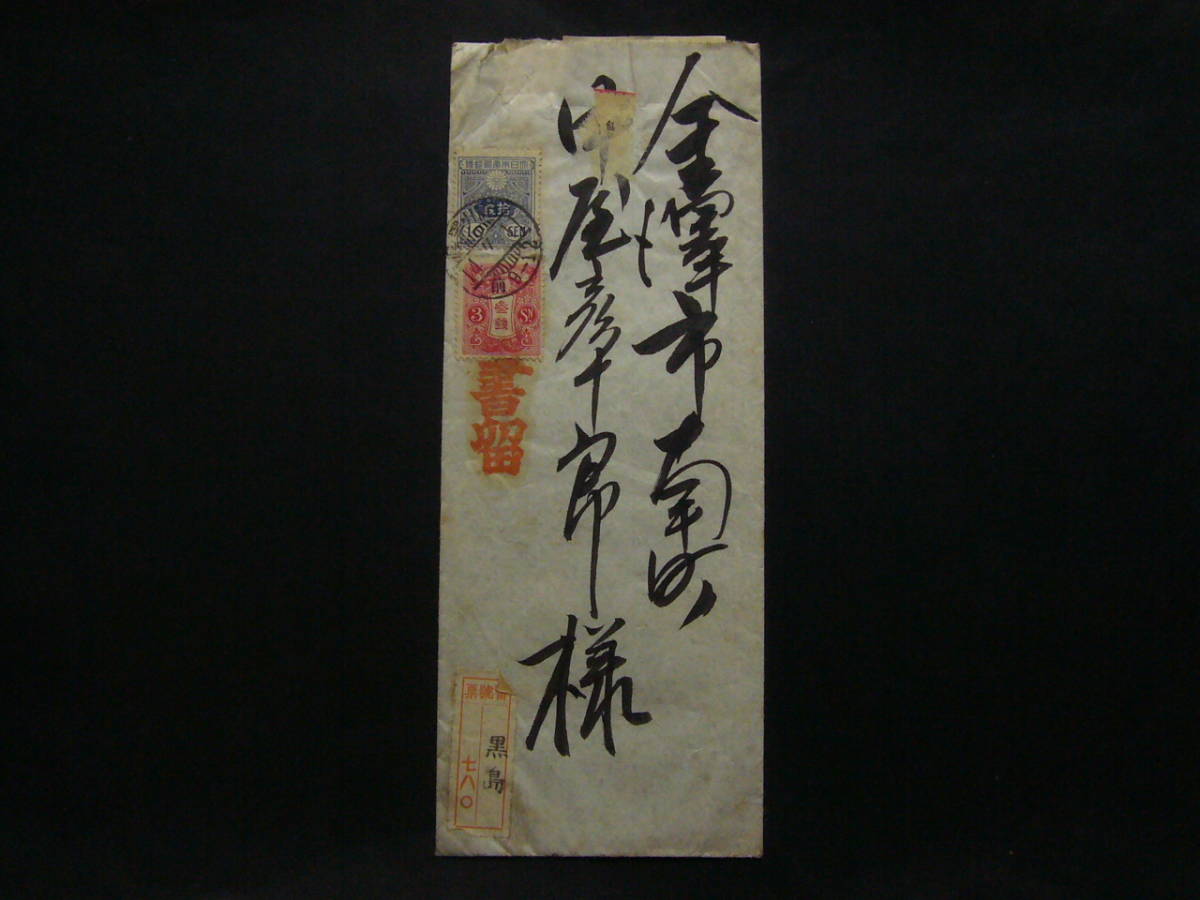 金澤市南町
中屋彦十郎様
大日本帝國郵便
拾銭
10 SEN
3 Sn
参銭
書留
番號票
黒島
七八〇